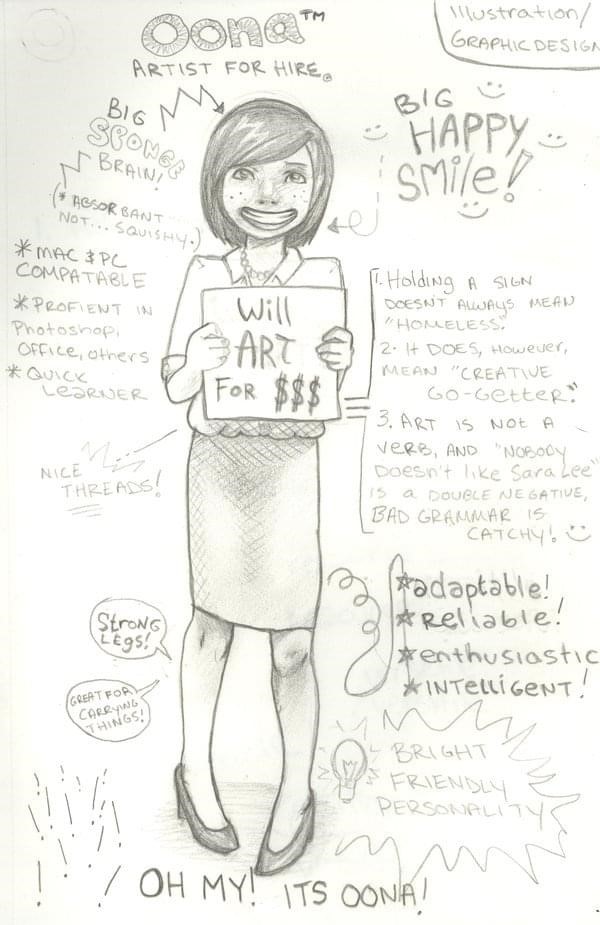 Oona™
ARTIST FOR HIRE.
Illustration/
GRAPHIC DESIGN
BIG
SPONGE
BRAIN!
(* ABSORBANT
NOT... SQUISHY.)
BIG
HAPPY
SMile!
* MAC & PC
COMPATABLE
* PROFIENT IN
Photoshop,
OFFICE, others
* QUICK
LEARNER
Will
ART
FOR $$$
1. Holding A SIGN
DOESNT ALWAYS MEAN
"HOMELESS".
2. It DOES, However,
MEAN "CREATIVE
GO-GETTER".
3. ART IS NOt A
VERB, AND "NOBODY
Doesn't like Sara Lee"
IS a DOUBLE NEGATIVE,
BAD GRAMMAR IS
CATCHY!
NICE
THREADS!
*adaptable!
*Reliable!
*enthusiastic
*INTelliGENT!
StroNG
LEgS!
GREAT FOR
CARRYING
THINGS!
BRIGHT
FRIENDLY
PERSONALITY
OH MY! ITS OONA!